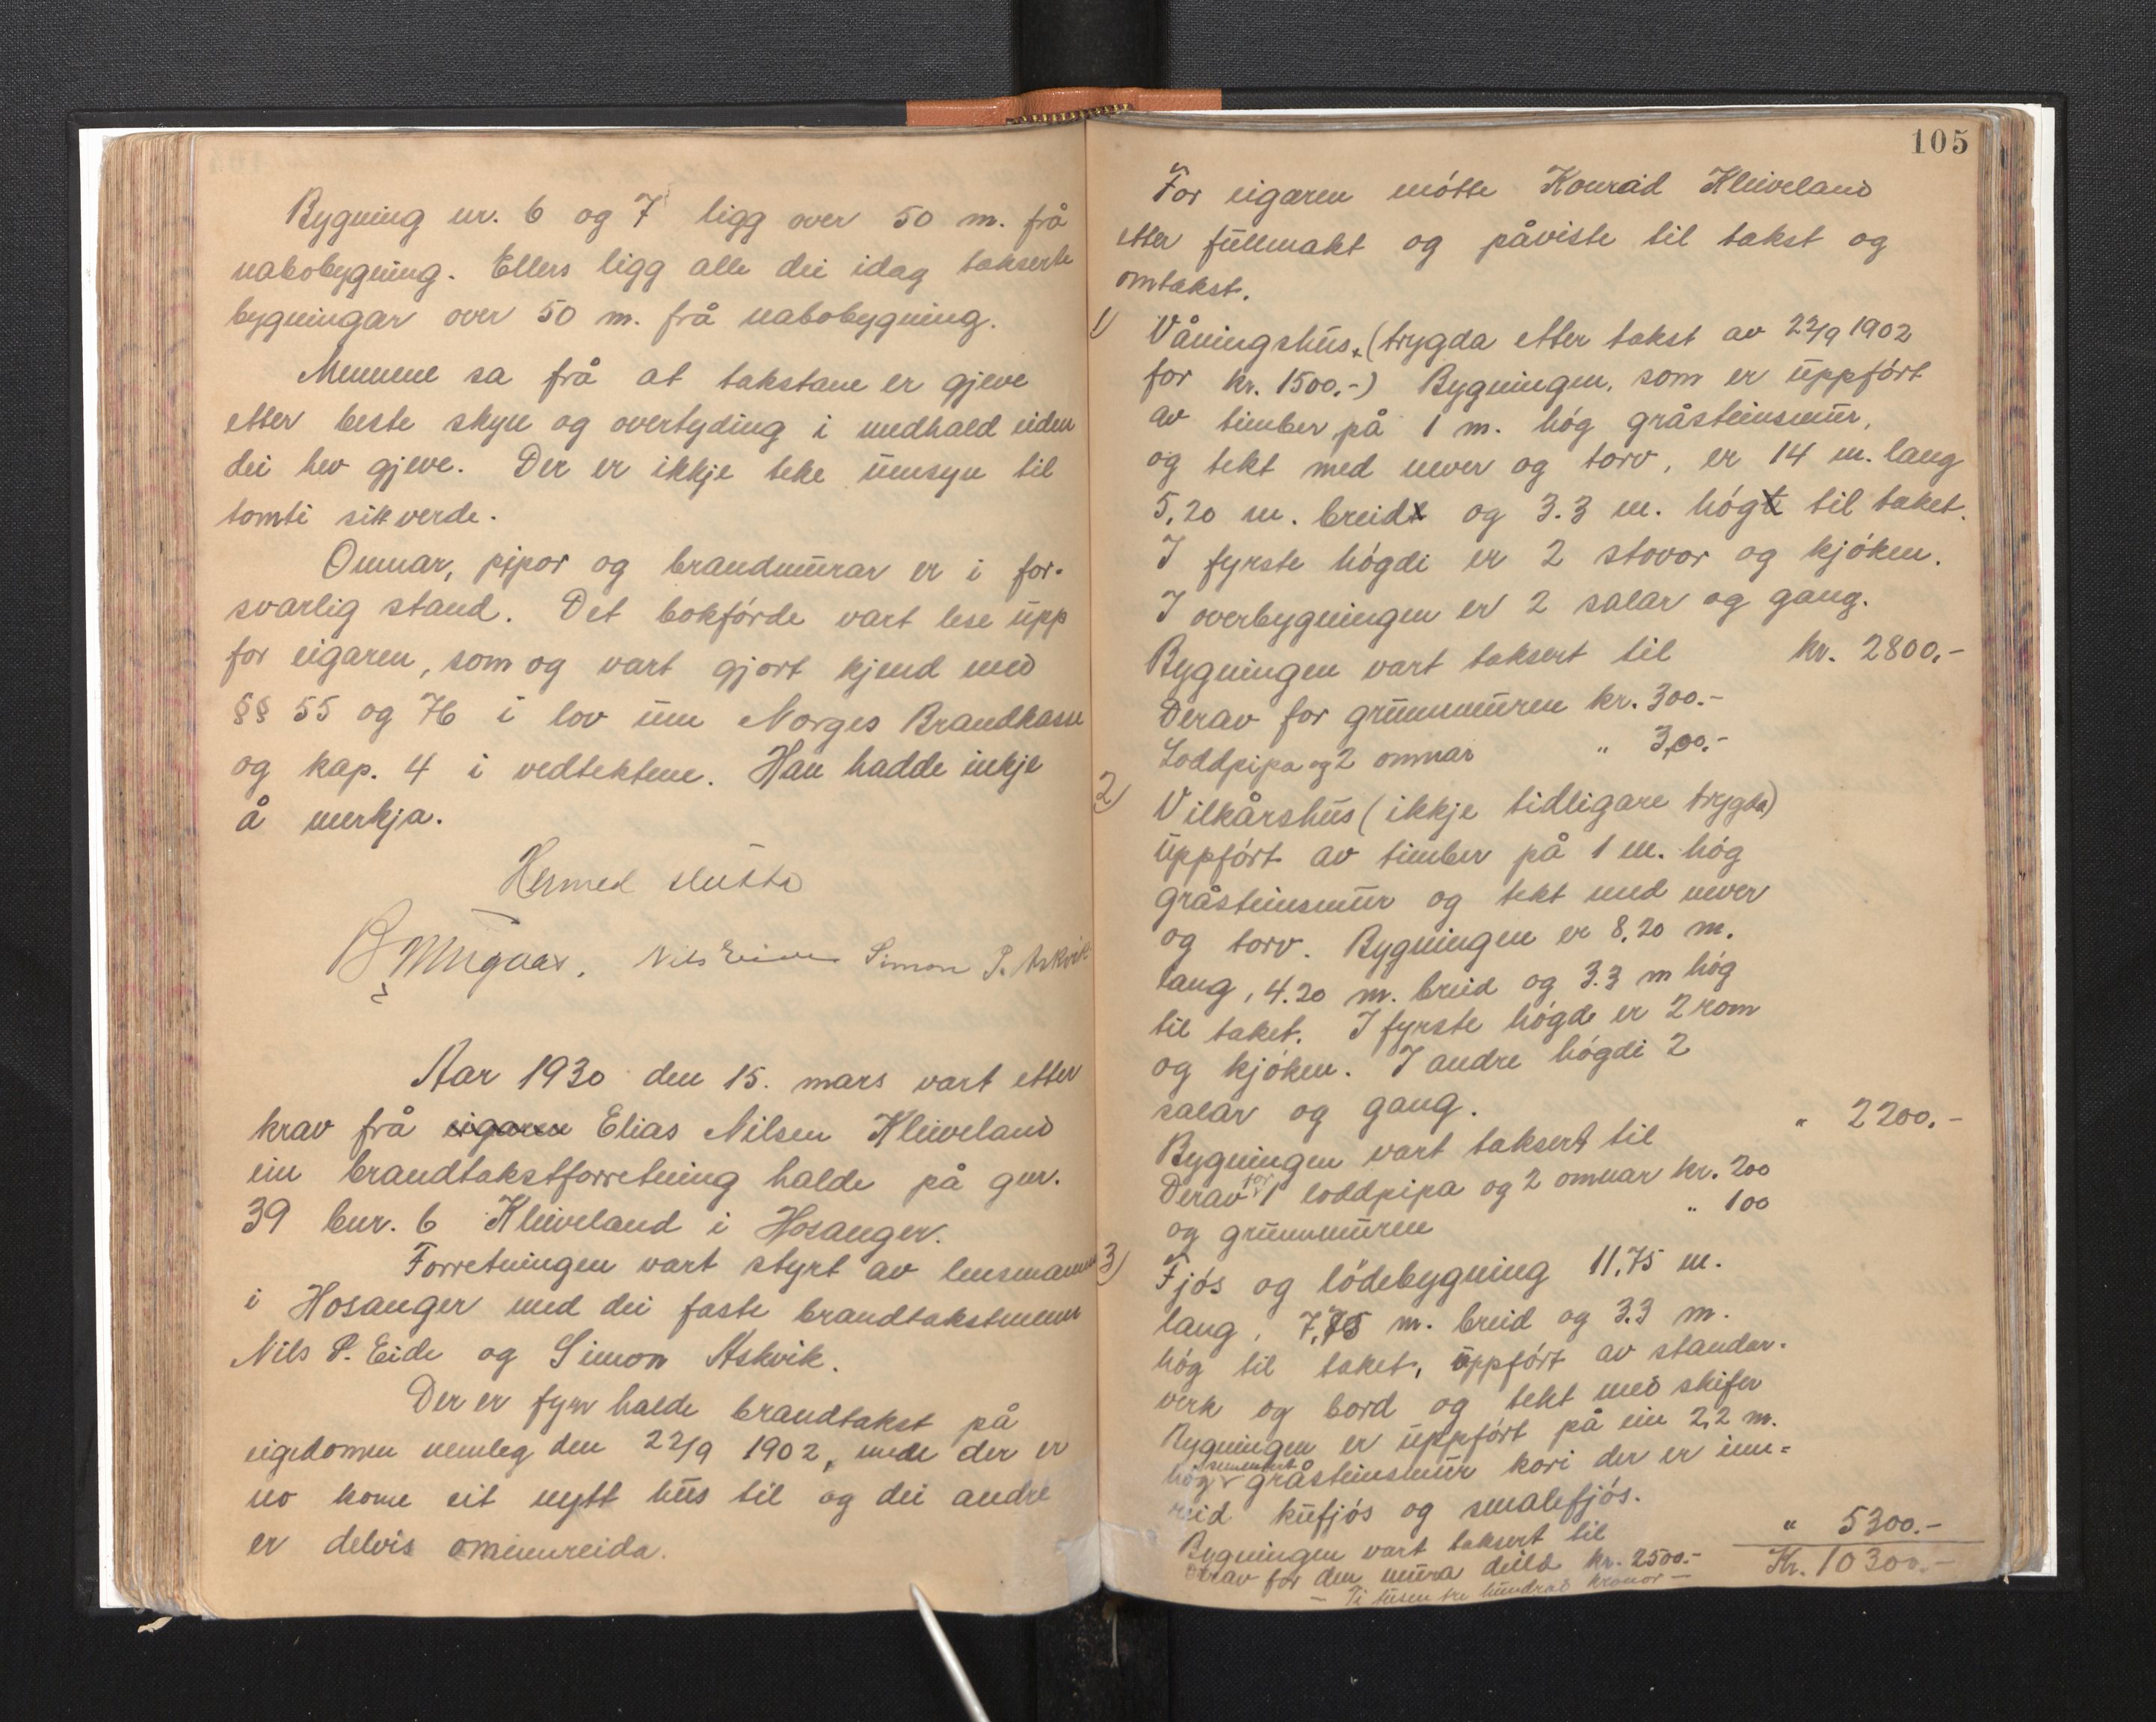 Bygning nr. 6 og 7 ligg over 50 m. frå
nabobygning. Ellers ligg alle dei idag takserte
bygningar over 50 m. frå nabobygning.
Mennene sa frå at takstane er gjeve
etter beste skyn og overtyding i medhald eiden
dei hev gjeve. Der er ikkje teke umsyn til
tomti sitt verde.
Omnar, pipor og brandmurar er i for-
svarlig stand. Det bokførde vart lese upp
for eigaren, som og vart gjort kjend med
§§ 55 og 76 i lov um Norges Brandkasse
og kap. 4 i vedtektene. Han hadde inkje
å merkja.
Hermed slutta
B Mugaas. Nils Eide Simon P. Askvik
Aar 1930 den 15. mars vart etter
krav frå eigaren Elias Nilsen Kleiveland
ein brandtakstforretning halde på gnr.
39 bnr. 6 Kleiveland i Hosanger.
Forretningen vart styrt av lensmannen
i Hosanger med dei faste brandtakstmenn
Nils P. Eide og Simon Askvik.
Der er fyrr halde brandtakst på
eigedomen nemleg den 22/9 1902, der er
no kome eit nytt hus til og dei andre
er delvis ominnreida.
105
For eigaren møtte Konrad Kleiveland
etter fullmakt og påviste til takst og
omtakst.
1) Våningshus, (trygda etter takst av 22/9 1902
for kr. 1500,-) Bygningen, som er uppført
av timber på 1 m. høg gråsteinsmur,
og tekt med never og torv, er 14 m. lang
5,20 m. breidt og 3.3 m. høgt til taket.
I fyrste høgdi er 2 stovor og kjøken.
I overbygningen er 2 salar og gang.
Bygningen vart taksert til kr. 2800,-
Derav for grunnmuren kr. 300.-
Loddpipa og 2 omnar " 300.-
2) Vilkårshus (ikkje tidligare trygda)
uppført av timber på 1 m. høg
gråsteinsmur og tekt med never
og torv. Bygningen er 8,20 m.
lang, 4.20 m. breid og 3.3 m høg
til taket. I fyrste høgde er 2 rom
og kjøken. I andre høgdi 2
salar og gang.
Bygningen vart taksert til " 2200.-
Derav for 1 loddpipa og 2 omnar kr. 200
og grunnmuren " 100
3) Fjøs og lødebygning 11,75 m.
lang, 7,75 m. breid og 3.3 m.
høg til taket, uppført av standar-
verk og bord og tekt med skifer
Bygningen er uppført på ein 2,2 m.
høg sementert gråsteinsmur kori der er inn-
reid kufjøs og smalefjøs.
Bygningen vart taksert til " 5300.-
Derav for den mura deild kr. 2500.- Kr. 10300.-
- Ti tusen tre hundrad kronor -